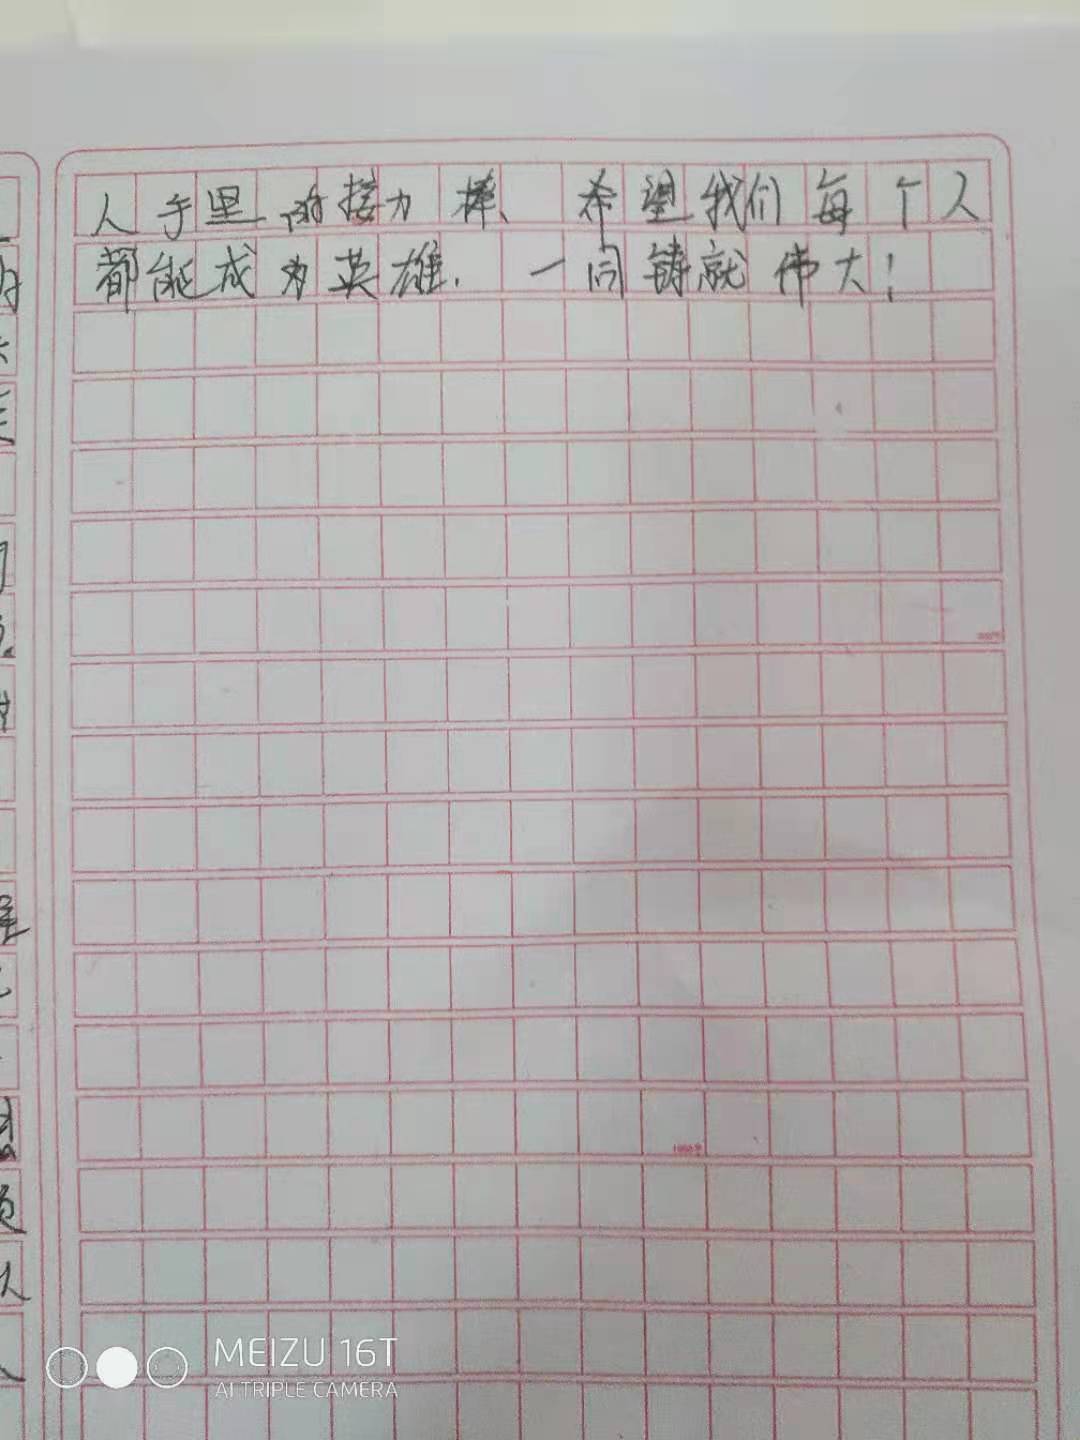 人手里的接力棒、希望我们每个人
都能成为英雄.一同铸就伟大!
MEIZU 16T
AI TRIPLE CAMERA